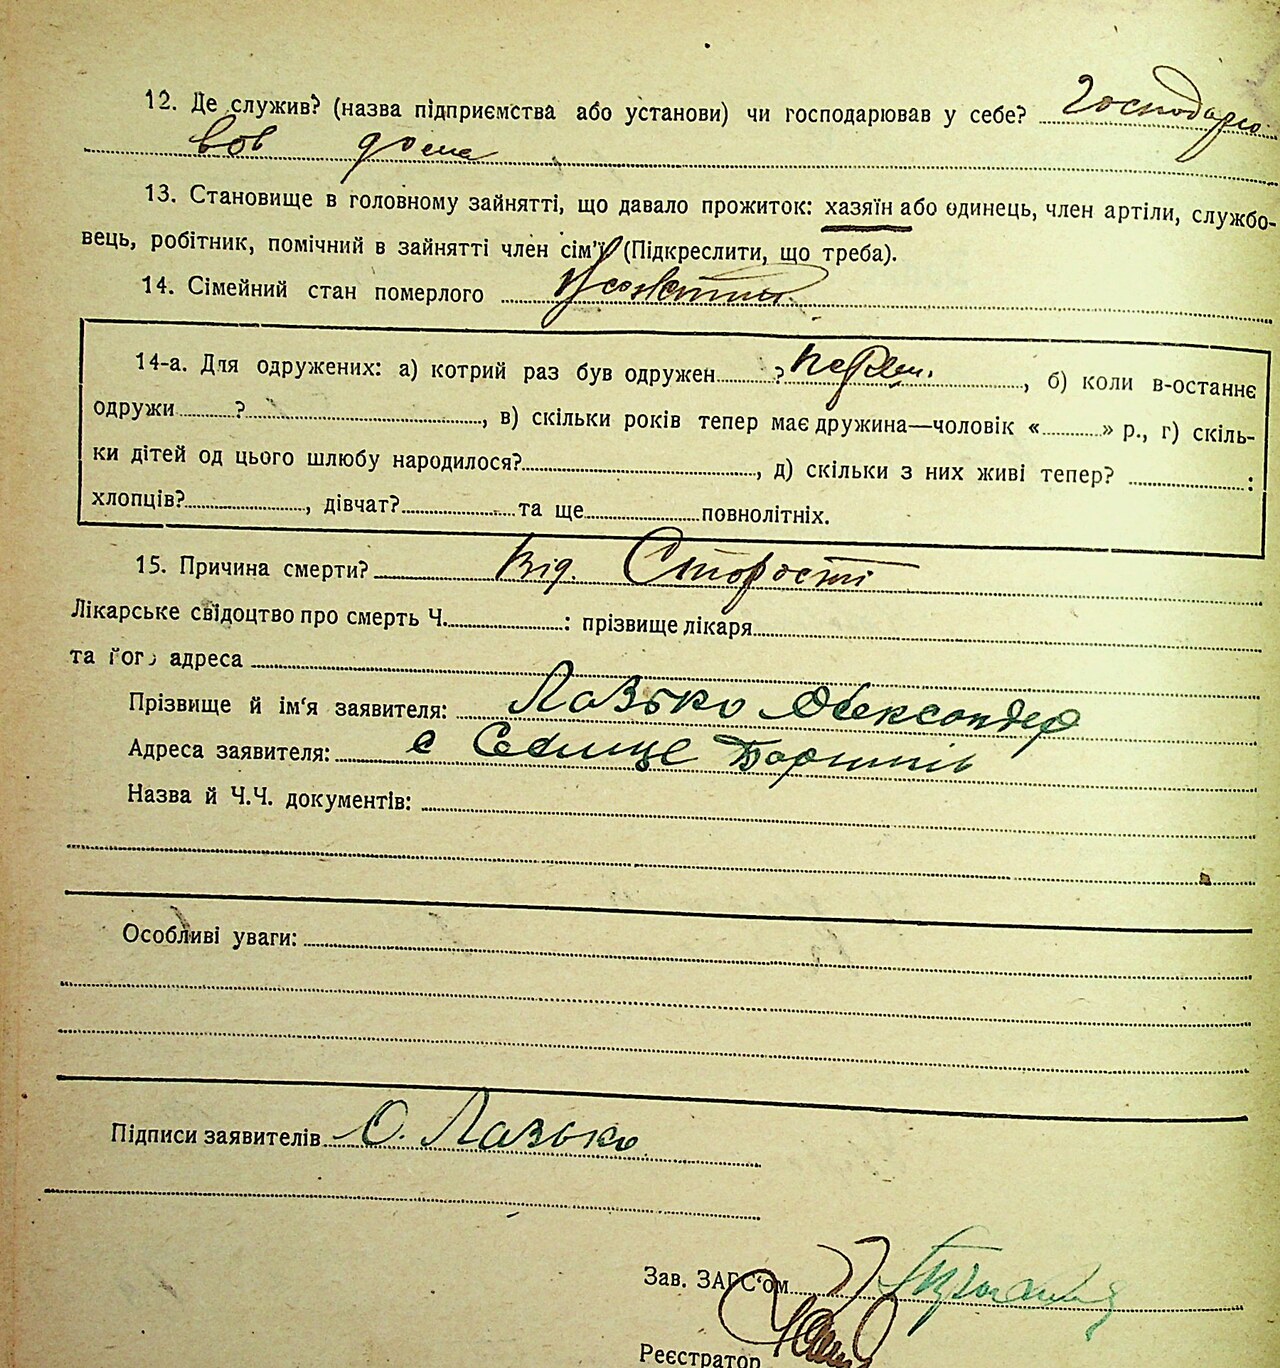 12. Де служив? (назва підприємства або установи) чи господарював у себе? Господарю-
вов дома
13. Становище в головному зайнятті, що давало прожиток: хазяїн або одинець, член артіли, службо-
вець, робітник, помічний в зайнятті член сім'ї (Підкреслити, що треба).
14. Сімейний стан померлого
14-а. Для одружених: а) котрий раз був одружен ? перш. , б) коли в-останнє
одружи ? , в) скільки років тепер має дружина—чоловік « » р., г) скіль-
ки дітей од цього шлюбу народилося? , д) скільки з них живі тепер? :
хлопців? , дівчат? та ще повнолітніх.
15. Причина смерти? Від. Старості
Лікарське свідоцтво про смерть Ч. : прізвище лікаря
та його адреса
Прізвище й ім'я заявителя: Лазько Олександер
Адреса заявителя: с Селище
Назва й Ч.Ч. документів:
Особливі уваги:
Підписи заявителів О. Лазько
Зав. ЗАГС'ом
Реєстратор